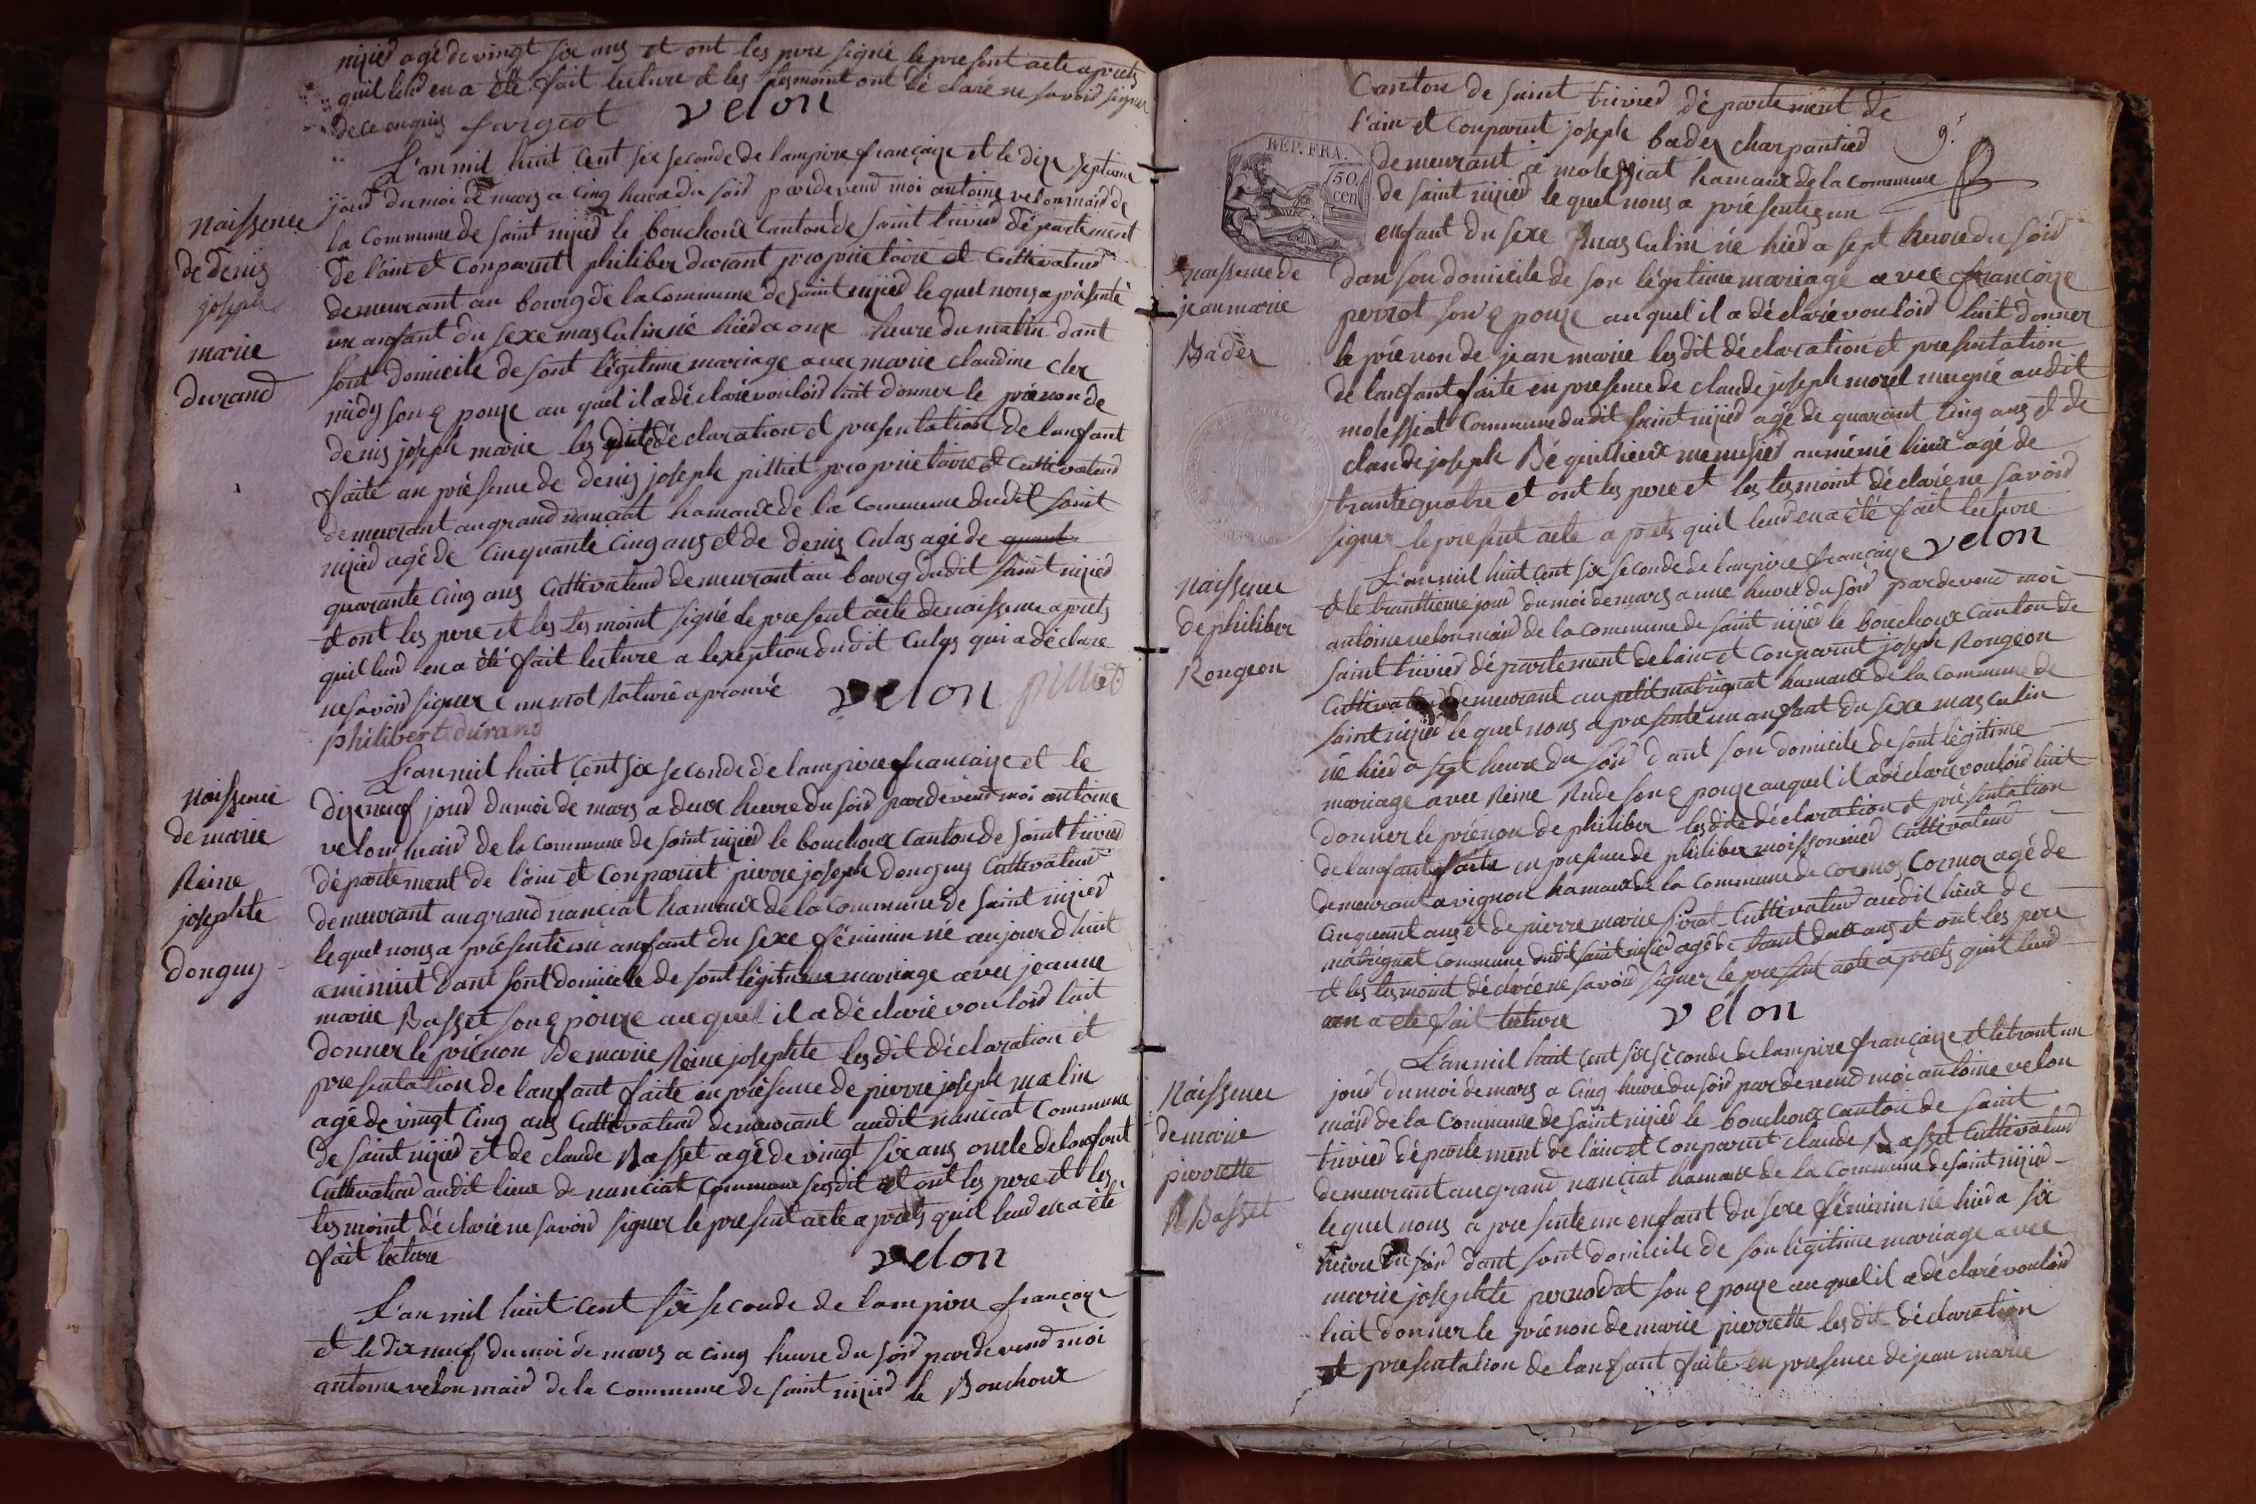 nijied agé de vingt six ans et ont les pere signé le present acte aprets
quil leud en a été fait lecture et les tesmoint ont dé claré ne savoid signer
de ce enquis fargeot velon
L'an mil huit cent six seconde de lampire française et le dix septieme
joud du moi de mars a cinq heure du soid pardevend moi antoine velon maid de
la commune de saint nijied le bouchoux canton de saint trivied département
de l'ain et conparut philiber durant proprietaire et cultivateud
demeurant au bourg de la commune de saint nijied le quel nous a présenté
un anfant du sexe masculin né hied a onze heure du matin dant
sont domicile de sont légitime mariage avec marie claudine cler
nidy son e pouze au quel il a déclaré vouloid luit donner le prénon de
denis joseph marie les dite déclaration et presentation de lanfant
faite an présence de denis joseph pilliet proprietaire et cultivateud
demeurant au grand nanciat hamaux de la commune dudit saint
nijied agé de cinquante cinq ans et de denis Culas agé de
quarante cinq ans cultivateud demeurant au bourg dudit saint nijied
et ont les pere et les tesmoint signé le present acte de naissence aprets
quil leud en a été fait lecture a lexeption dudit Culas qui a déclare
ne savoid signer un mot rature aprouvé velon pilliet
philibert durand
Naissence
de denis
joseph
marie
durand
L'an mil huit cent six seconde de lampire française et le
dix neuf joud du moi de mars a deux heure du soid pardevend moi antoine
velon maid de la commune de saint nijied le bouchoux canton de saint trivied
département de l'ain et conparut pierre joseph donguy cultivateud
demeurant au grand nanciat hamaux de la commune de saint nijied
lequel nous a présenté un anfant du sexe féminin né aujourdhuit
a minuit dant sont domicile de sont légitime mariage avec jeanne
marie Basset son e pouze au quel il a déclaré vouloid luit
donner le prénon de marie Reine josephte les dit déclaration et
presentation de lanfant faite en présence de pierre joseph malin
agé de vingt cinq ans cultivateud demeurant audit nanciat commune
de saint nijied et de claude Basset agé de vingt six ans oncle de lanfant
cultivateud audit lieux de nanciat commune susdit et ont les pere et les
tesmoint déclaré ne savoid signer le present acte aprets quil leud en a été
fait lecture velon
Naissence
de marie
Reine
josephte
donguy
L'an mil huit cent six seconde de lampire française
et le dix neuf du moi de mars a cinq heure du soid pardevend moi
antoine velon maid de la commune de saint nijied le Bouchoux
canton de saint trivied département de
l'ain et conparut joseph badez charpantied
demeurant a molessiat hamaux de la commune
de saint nijied le quel nous a présenté un
enfant du sexe masculin né hied a sept heure du soid
dan son domicile de son légitime mariage avec françoise
perrot son e pouze au quel il a déclaré vouloid luit donner
le prénon de jean marie les dit déclaration et presentation
de lanfant faite en presence de claude joseph morel mugnié au dit
molessiat commune dudit saint nijied agé de quarant cinq ans et de
claude joseph Béguillieux menusied au mémé lieux agé de
trante quatre et ont les pere et les tesmoint déclaré ne savoid
signer le present acte aprets quil leud en a été fait lecture
velon
9.
RÉP. FRA.
50
cen
Naissence de
jean marie
Badez
L'an mil huit cent six seconde de lampire française
et le trantieme joud du moi de mars a une heure du soid pardevend moi
antoine velon maid de la commune de saint nijied le bouchoux canton de
saint trivied département de lain et conparut joseph Rongeon
cultivateud demeurant au petit matrignat hamaux de la commune de
saint nijied le quel nous a presenté un anfant du sexe masculin
né hied a sept heure du soid dant son domicile de sont légitime
mariage avec Reine Rude son e pouze auquel il a déclaré vouloid luit
donner le prénon de philiber les dite déclaration et présentation
de lanfant faite en presence de philiber moissonnied cultivateud
demeurant a vignon hamaux de la commune de cormoz agé de
cinquant ans et de pierre marie Pirat cultivateud audit lieux de
matrignat commune dudit saint nijied agé de trant deux ans et ont les pere
et les tesmoint déclaré ne savoid signer le present acte aprets quil leud
en a été fait lecture velon
Naissence
de philiber
Rongeon
L'an mil huit cent six séconde de lampire française et le trant un
joud du moi de mars a cinq heure du soid pardevend moi antoine velon
maid de la commune de saint nijied le bouchoux canton de saint
trivied département de lain et conparut claude Basset cultivateud
demeurant au grand nanciat hamaux de la commune de saint nijied
lequel nous a presenté un enfant du sexe féminin né hied a six
heure du soid dant sont domicile de son légitime mariage avec
marie josephte pernodat son e pouze au quel il a déclaré vouloid
luit donner le prénon de marie pierrette les dit déclaration
et presentation de lanfant faite en presence de jean marie
Naissence
de marie
pierrette
Basset